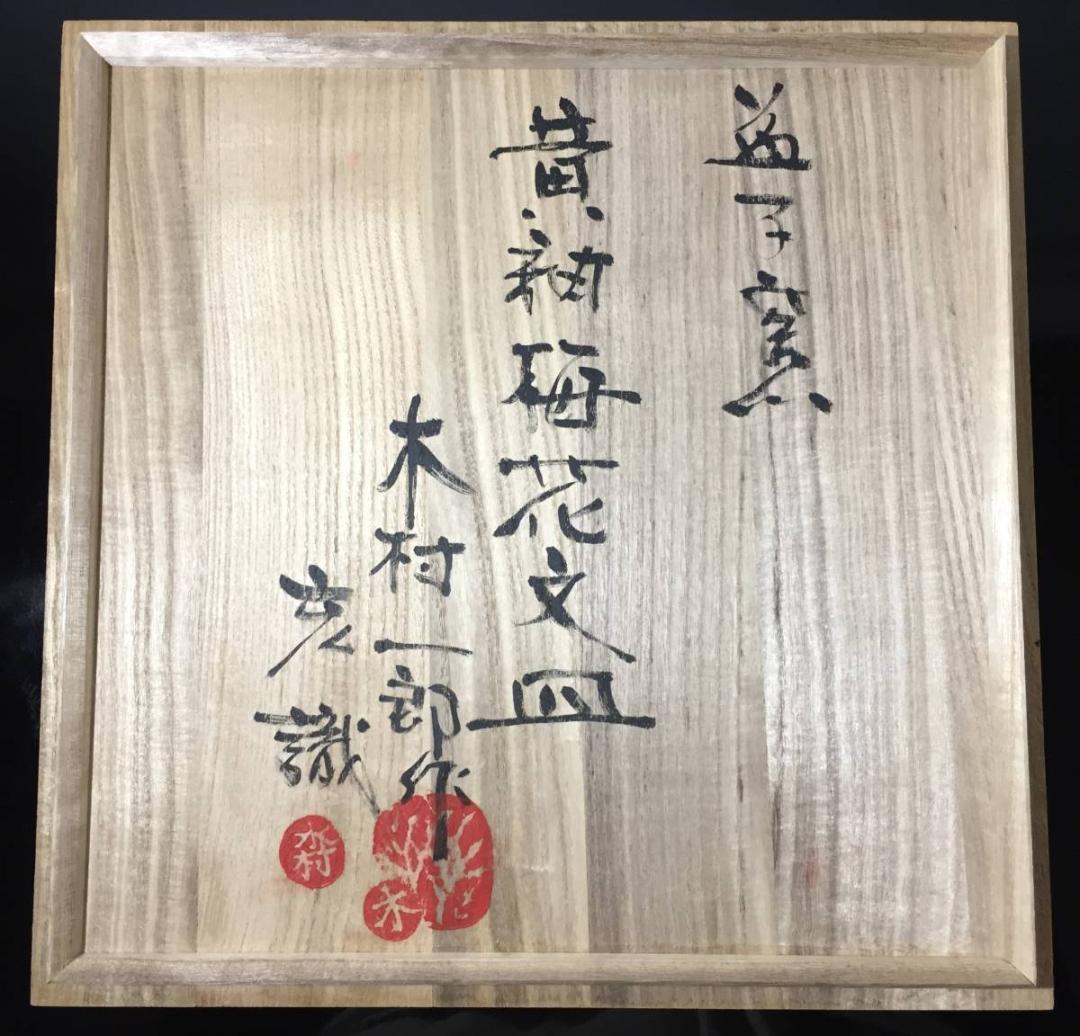 益子窯
黄釉梅花文皿
木村一郎作
識
木村